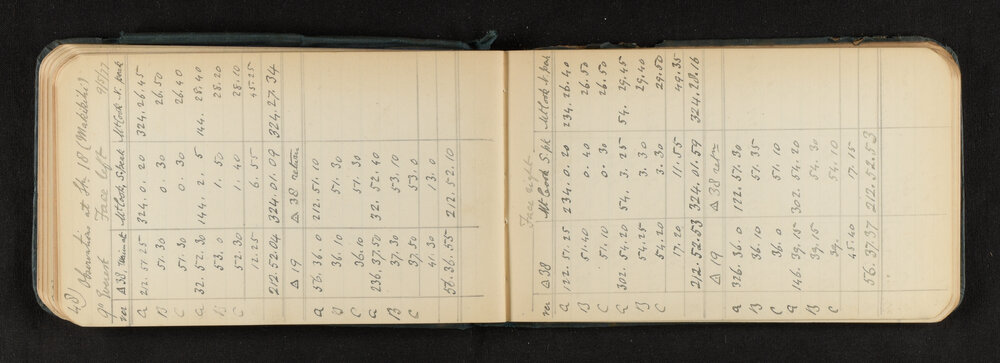 48) Observations at Stn 18 (Makikihi)
Everest Face left 9/5/77
ver Δ 38, Mt Cook, S. peak Mt Cook N. peak
A 212.51.25 324.0.20 324.26.45
B 51.30 0.30 26.50
C 51.30 0.30 26.40
A 32.52.30 144.2.5 144.28.40
B 53.0 1.50 28.20
C 52.30 1.40 28.10
12.25 6.55 45.25
212.52.04 324.01.09 324.27.34
Δ 19 Δ 38 return
A 56.36.0 212.51.10
B 36.10 51.30
C 36.10 51.30
A 236.37.50 32.52.40
B 37.30 53.10
C 37.50 53.0
41.30 13.0
56.36.55 212.52.10
Face right
ver Δ 38 Mt Cook S. pk Mt Cook N. peak
A 122.51.25 234.0.20 234.26.40
B 51.40 0.40 26.50
C 51.10 0.30 26.50
A 302.54.20 54.3.25 54.29.45
B 54.25 3.30 29.40
C 54.20 3.30 29.50
17.20 11.55 49.35
212.52.53 324.01.59 324.28.16
Δ 19 Δ 38 retn
A 326.36.0 122.51.30
B 36.10 51.35
C 36.0 51.10
A 146.39.15 302.54.20
B 39.15 54.30
C 39. 54.10
45.40 17.15
56.37.37 212.52.53